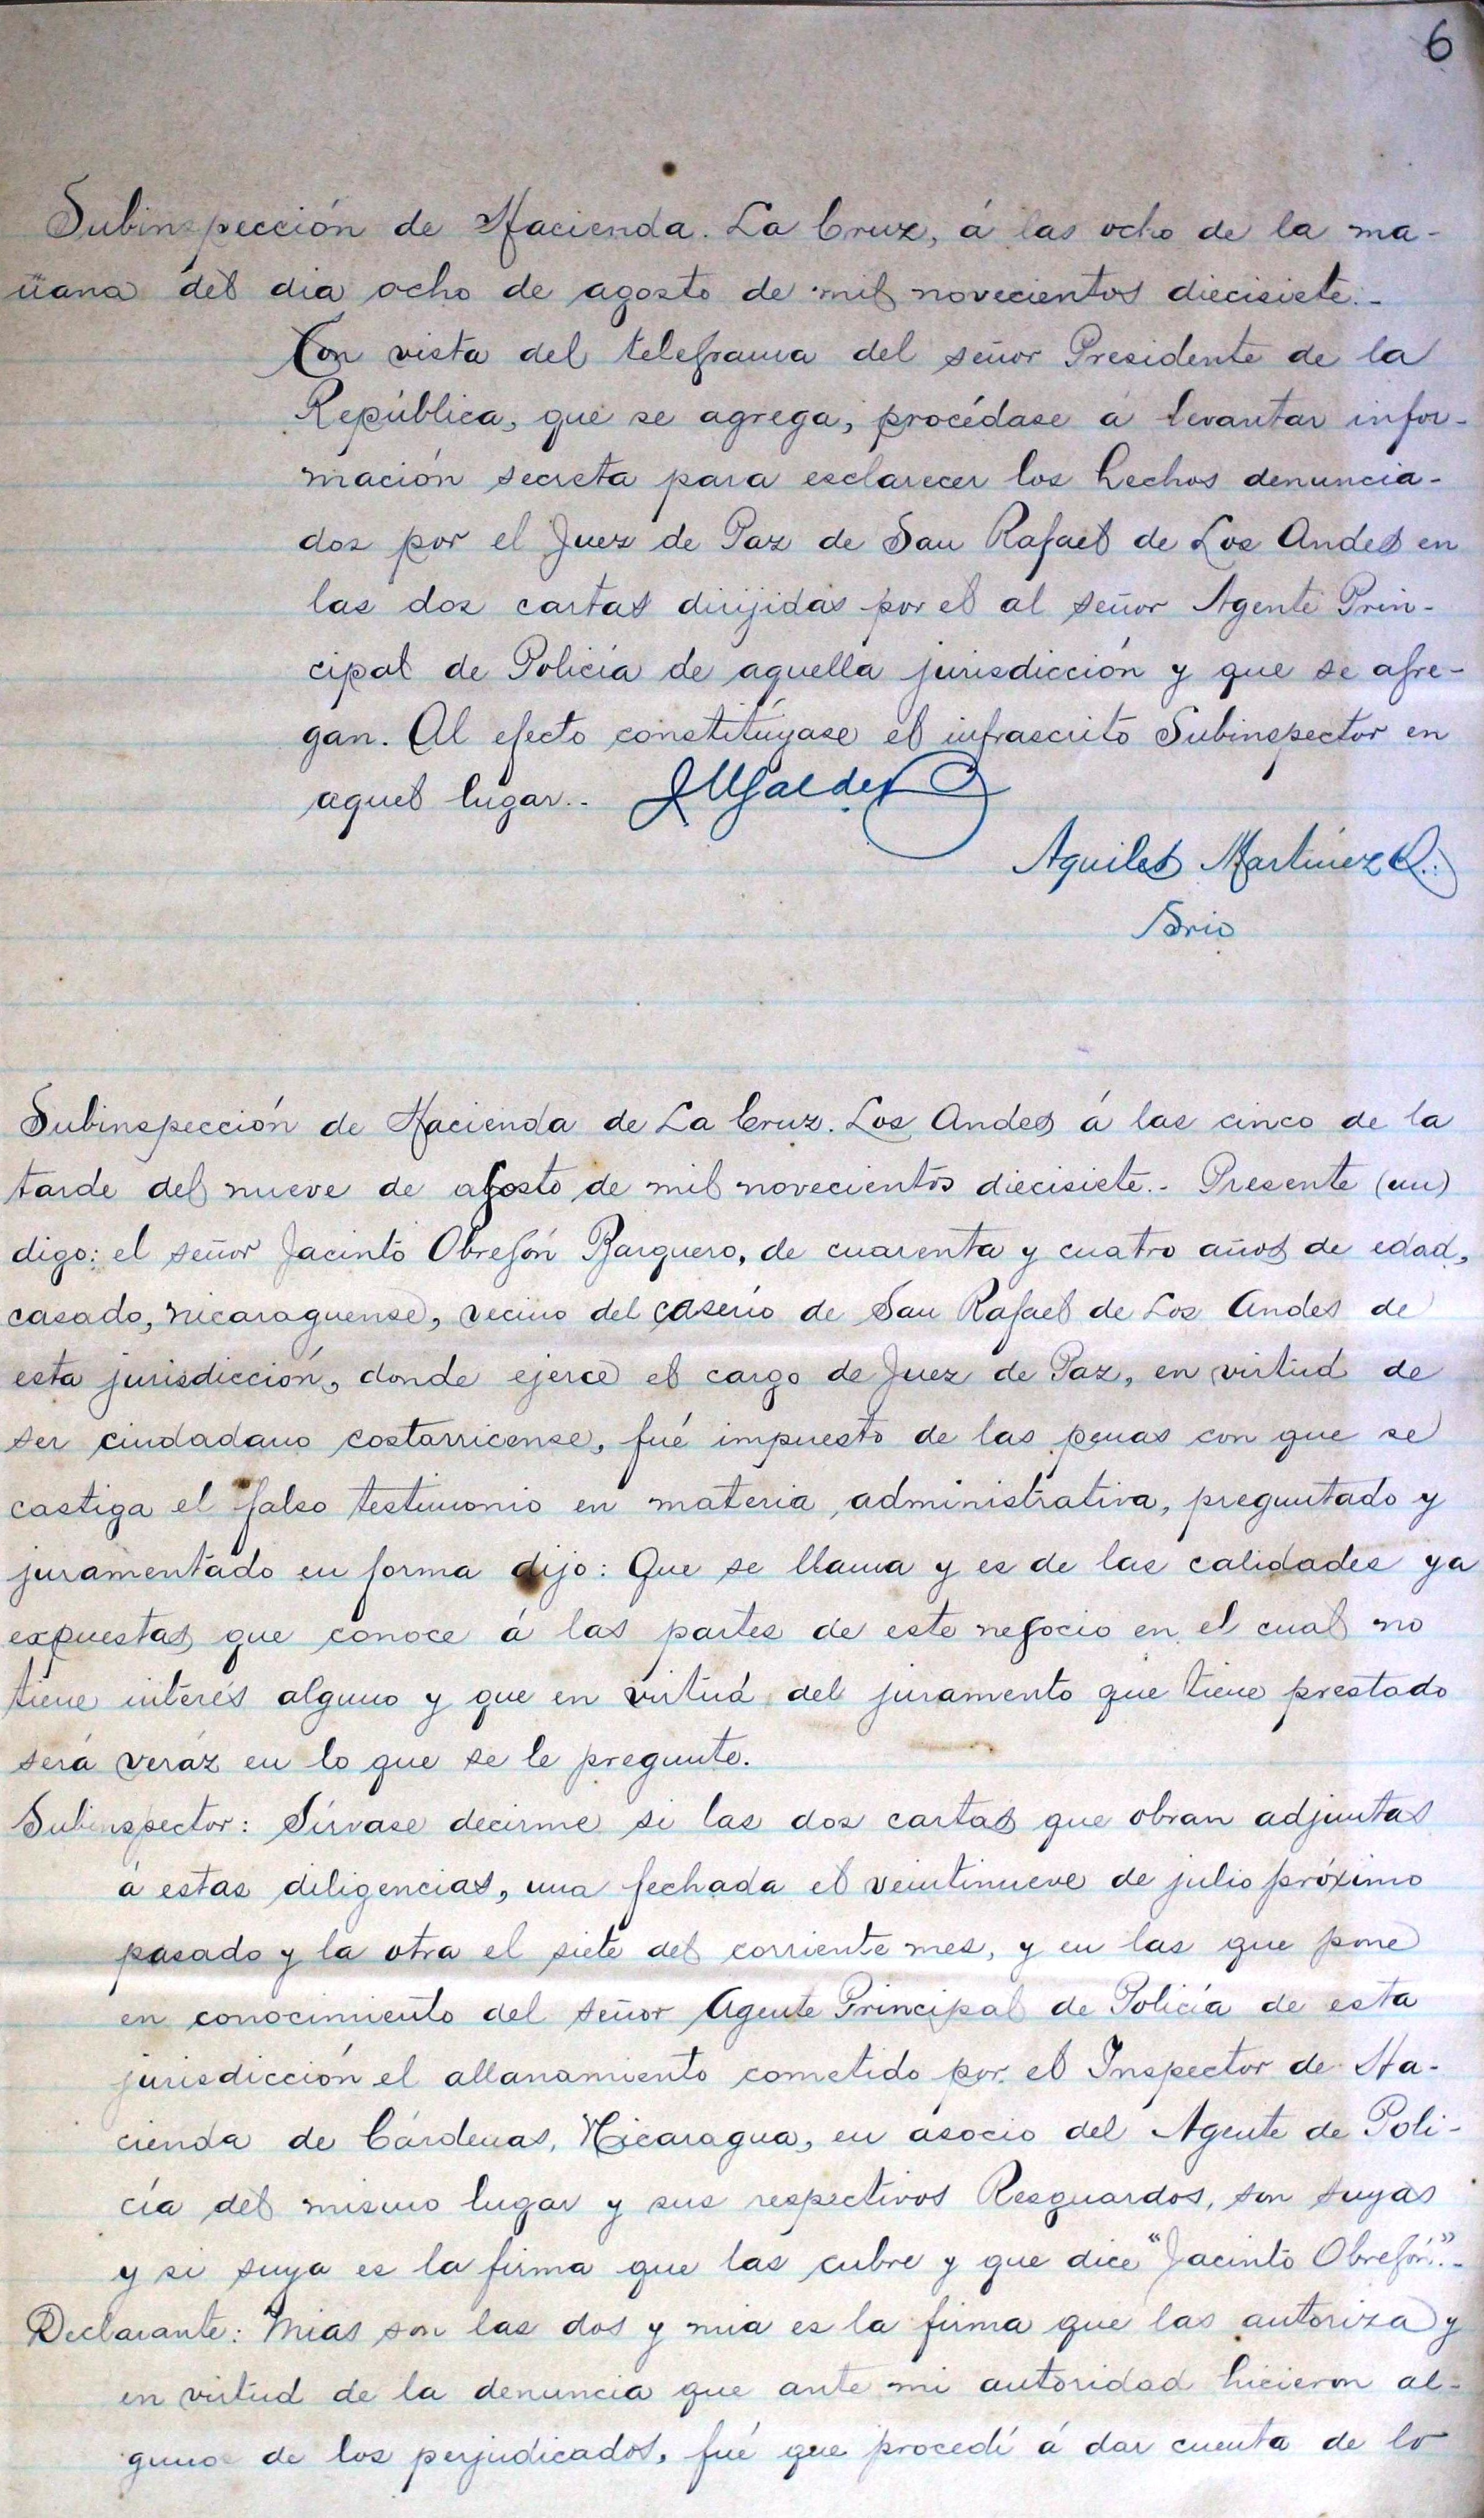 6
Subinspección de Hacienda. La Cruz, á las ocho de la ma-
ñana del dia ocho de agosto de mil novecientos diecisiete.-
Con vista del telegrama del señor Presidente de la
República, que se agrega, procédase á levantar infor-
mación secreta para esclarecer los hechos denuncia-
dos por el Juez de Paz de San Rafael de Los Andes en
las dos cartas dirijidas por el al señor Agente Prin-
cipal de Policía de aquella jurisdicción y que se agre-
gan. Al efecto constitúyase el infrascrito Subinspector en
aquel lugar.-
Aquiles Martínez R.
Srio
Subinspección de Hacienda de La Cruz. Los Andes á las cinco de la
tarde del nueve de agosto de mil novecientos diecisiete.- Presente (un)
digo: el señor Jacinto Obregón Barquero, de cuarenta y cuatro años de edad,
casado, nicaraguense, vecino del caserío de San Rafael de Los Andes de
esta jurisdicción, donde ejerce el cargo de Juez de Paz, en virtud de
ser ciudadano costarricense, fué impuesto de las penas con que se
castiga el falso testimonio en materia administrativa, preguntado y
juramentado en forma dijo: Que se llama y es de las calidades ya
expuestas, que conoce á las partes de este negocio en el cual no
tiene interés alguno y que en virtud del juramento que tiene prestado
será veráz en lo que se le pregunte.
Subinspector: Sírvase decirme si las dos cartas que obran adjuntas
á estas diligencias, una fechada el veintinueve de julio próximo
pasado y la otra el siete del corriente mes, y en las que pone
en conocimiento del señor Agente Principal de Policía de esta
jurisdicción el allanamiento cometido por el Inspector de Ha-
cienda de Cárdenas, Nicaragua, en asocio del Agente de Poli-
cía del mismo lugar y sus respectivos Resguardos, son suyas
y si suya es la firma que las cubre y que dice "Jacinto Obregón".-
Declarante: Mias son las dos y mia es la firma que las autoriza y
en virtud de la denuncia que ante mi autoridad hicieron al-
gunos de los perjudicados, fué que procedí á dar cuenta de lo